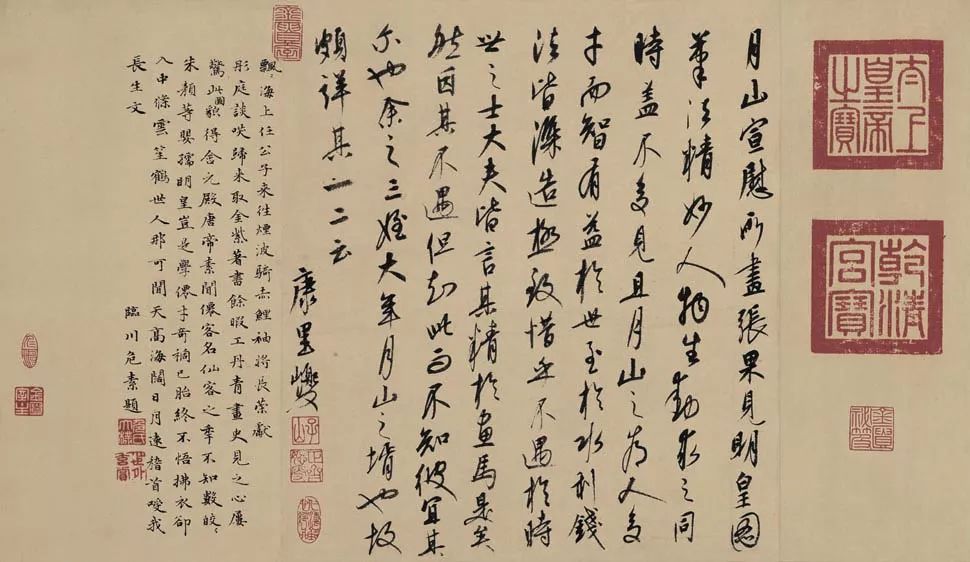 太上皇帝之寶
乾清宮寶
月山宣慰所畫張果見明皇圖
筆法精妙人物生動求之同
時蓋不多見且月山之為人多
才而智有益於世至於水利錢
法皆深造極致惜乎不遇於時
世之士大夫皆言其精於畫馬是矣
然因其不遇但知此而不知彼宜其
尓也余之三姪大年月山之壻也故
頗詳其一二云
康里巎
飄〻海上任公子来往煙波騎赤鯉袖將長策獻
彤庭談咲歸来取金紫著書餘暇工丹青畫史見之心屢
驚此圖貌得含元殿唐帝素聞僊客名仙客之年不知數皎〻
朱顏等嬰孺明皇豈是學僊才奇禍已胎終不悟拂衣卻
入中條雲笙鶴世人那可聞天高海闊日月速稽首我
長生文
臨川危素題